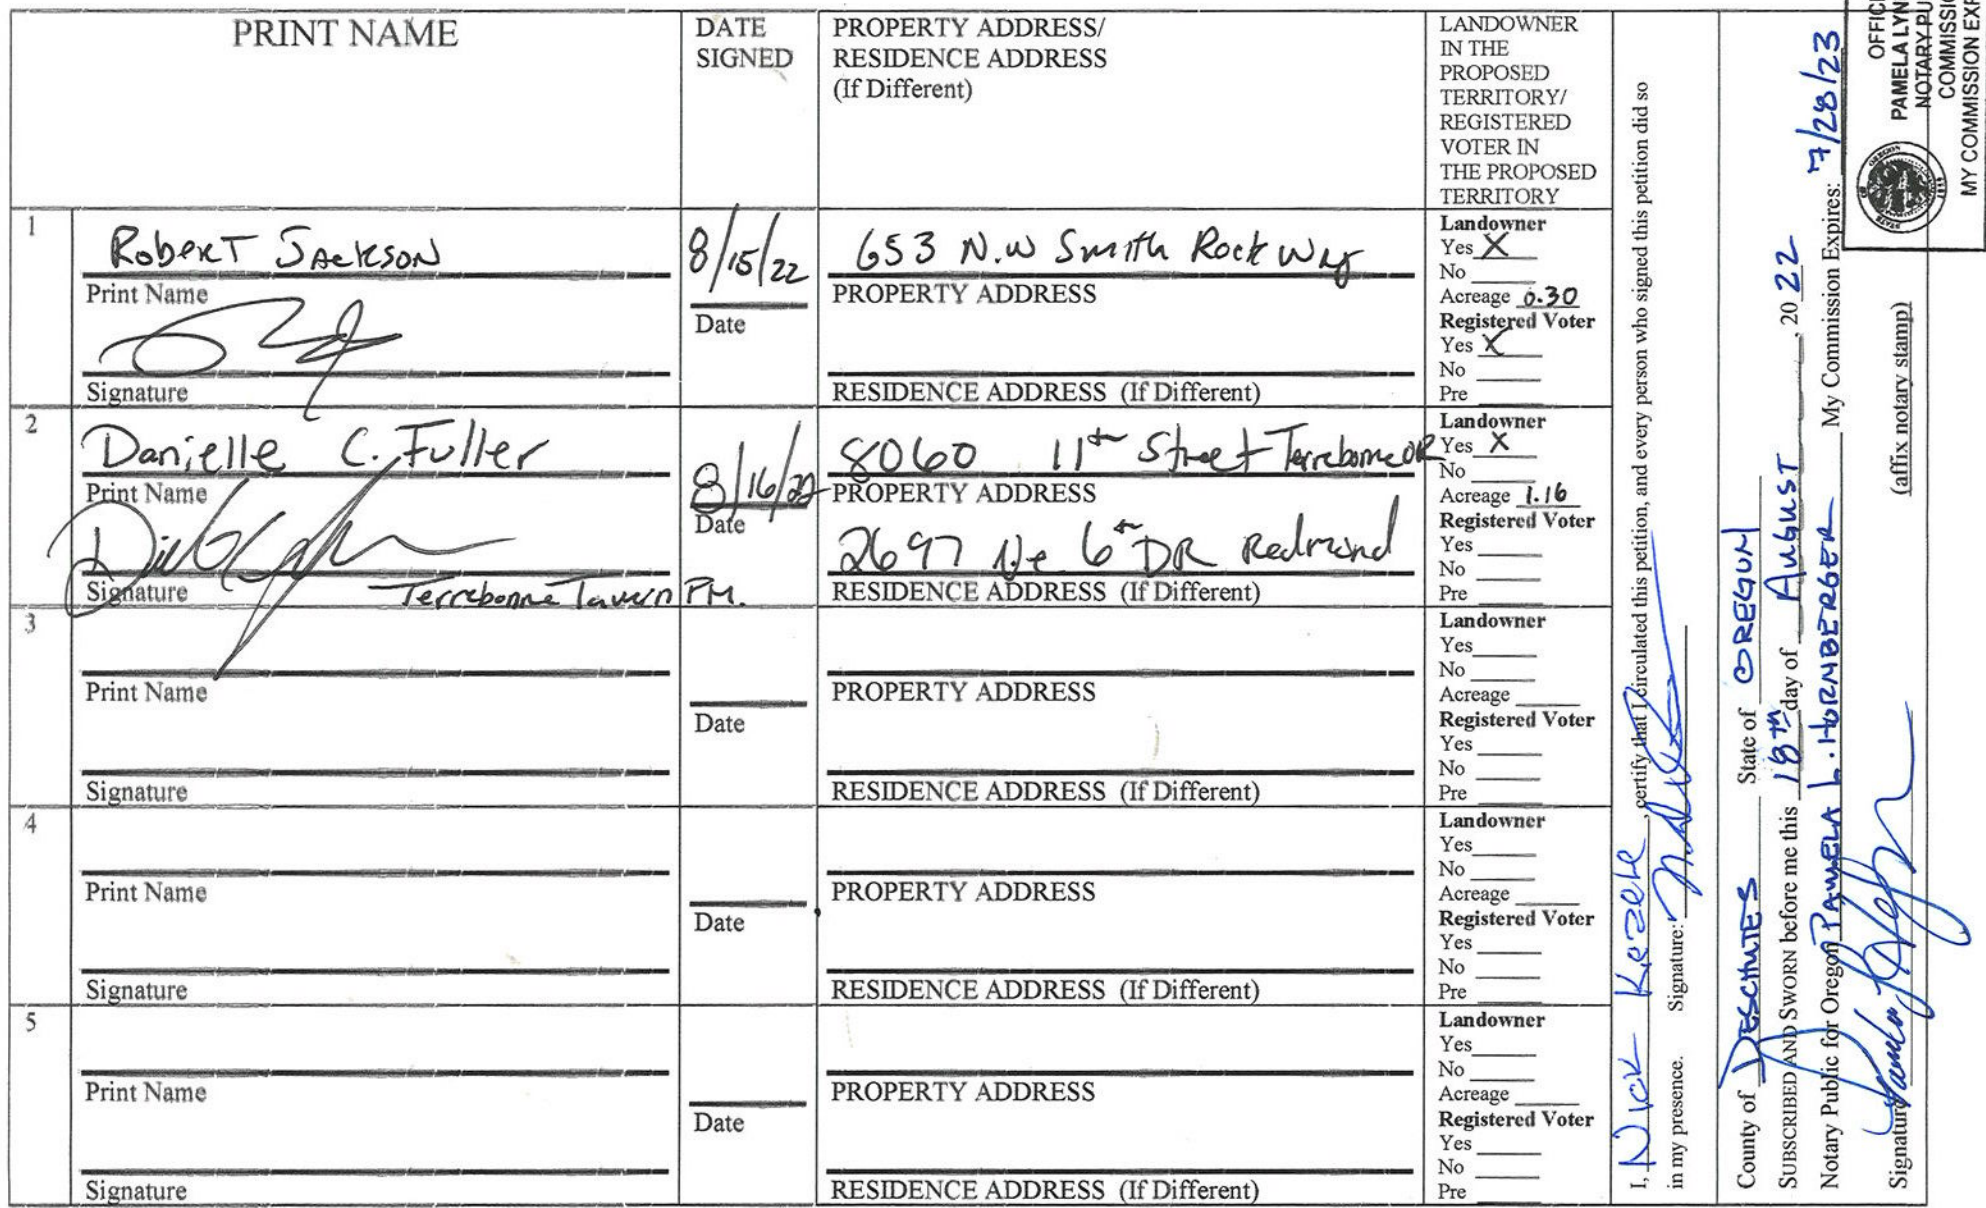 PRINT NAME
DATE
SIGNED
PROPERTY ADDRESS/
RESIDENCE ADDRESS
(If Different)
LANDOWNER
IN THE
PROPOSED
TERRITORY/
REGISTERED
VOTER IN
THE PROPOSED
TERRITORY
1
Robert Jackson
Print Name
Signature
8/15/22
Date
653 N.W Smith Rock Way
PROPERTY ADDRESS
RESIDENCE ADDRESS (If Different)
Landowner
Yes X
No
Acreage 0.30
Registered Voter
Yes X
No
Pre
2
Danielle C. Fuller
Print Name
Signature
Terrebonne Tavern PM.
8/16/22
Date
8060 11th Street Terrebonne OR
PROPERTY ADDRESS
2697 Ne 6th DR Redmond
RESIDENCE ADDRESS (If Different)
Landowner
Yes X
No
Acreage 1.16
Registered Voter
Yes
No
Pre
3
Print Name
Signature
Date
PROPERTY ADDRESS
RESIDENCE ADDRESS (If Different)
Landowner
Yes
No
Acreage
Registered Voter
Yes
No
Pre
4
Print Name
Signature
Date
PROPERTY ADDRESS
RESIDENCE ADDRESS (If Different)
Landowner
Yes
No
Acreage
Registered Voter
Yes
No
Pre
5
Print Name
Signature
Date
PROPERTY ADDRESS
RESIDENCE ADDRESS (If Different)
Landowner
Yes
No
Acreage
Registered Voter
Yes
No
Pre
I, Nick Kezele, certify that I circulated this petition, and every person who signed this petition did so
in my presence. Signature:
County of DESCHUTES State of OREGON
SUBSCRIBED AND SWORN before me this 18TH day of AUGUST, 2022
Notary Public for Oregon PAMELA L. HORNBERGER My Commission Expires: 7/28/23
Signature (affix notary stamp)
OFFIC
PAMELA LYN
NOTARY PU
COMMISSIO
MY COMMISSION EXP